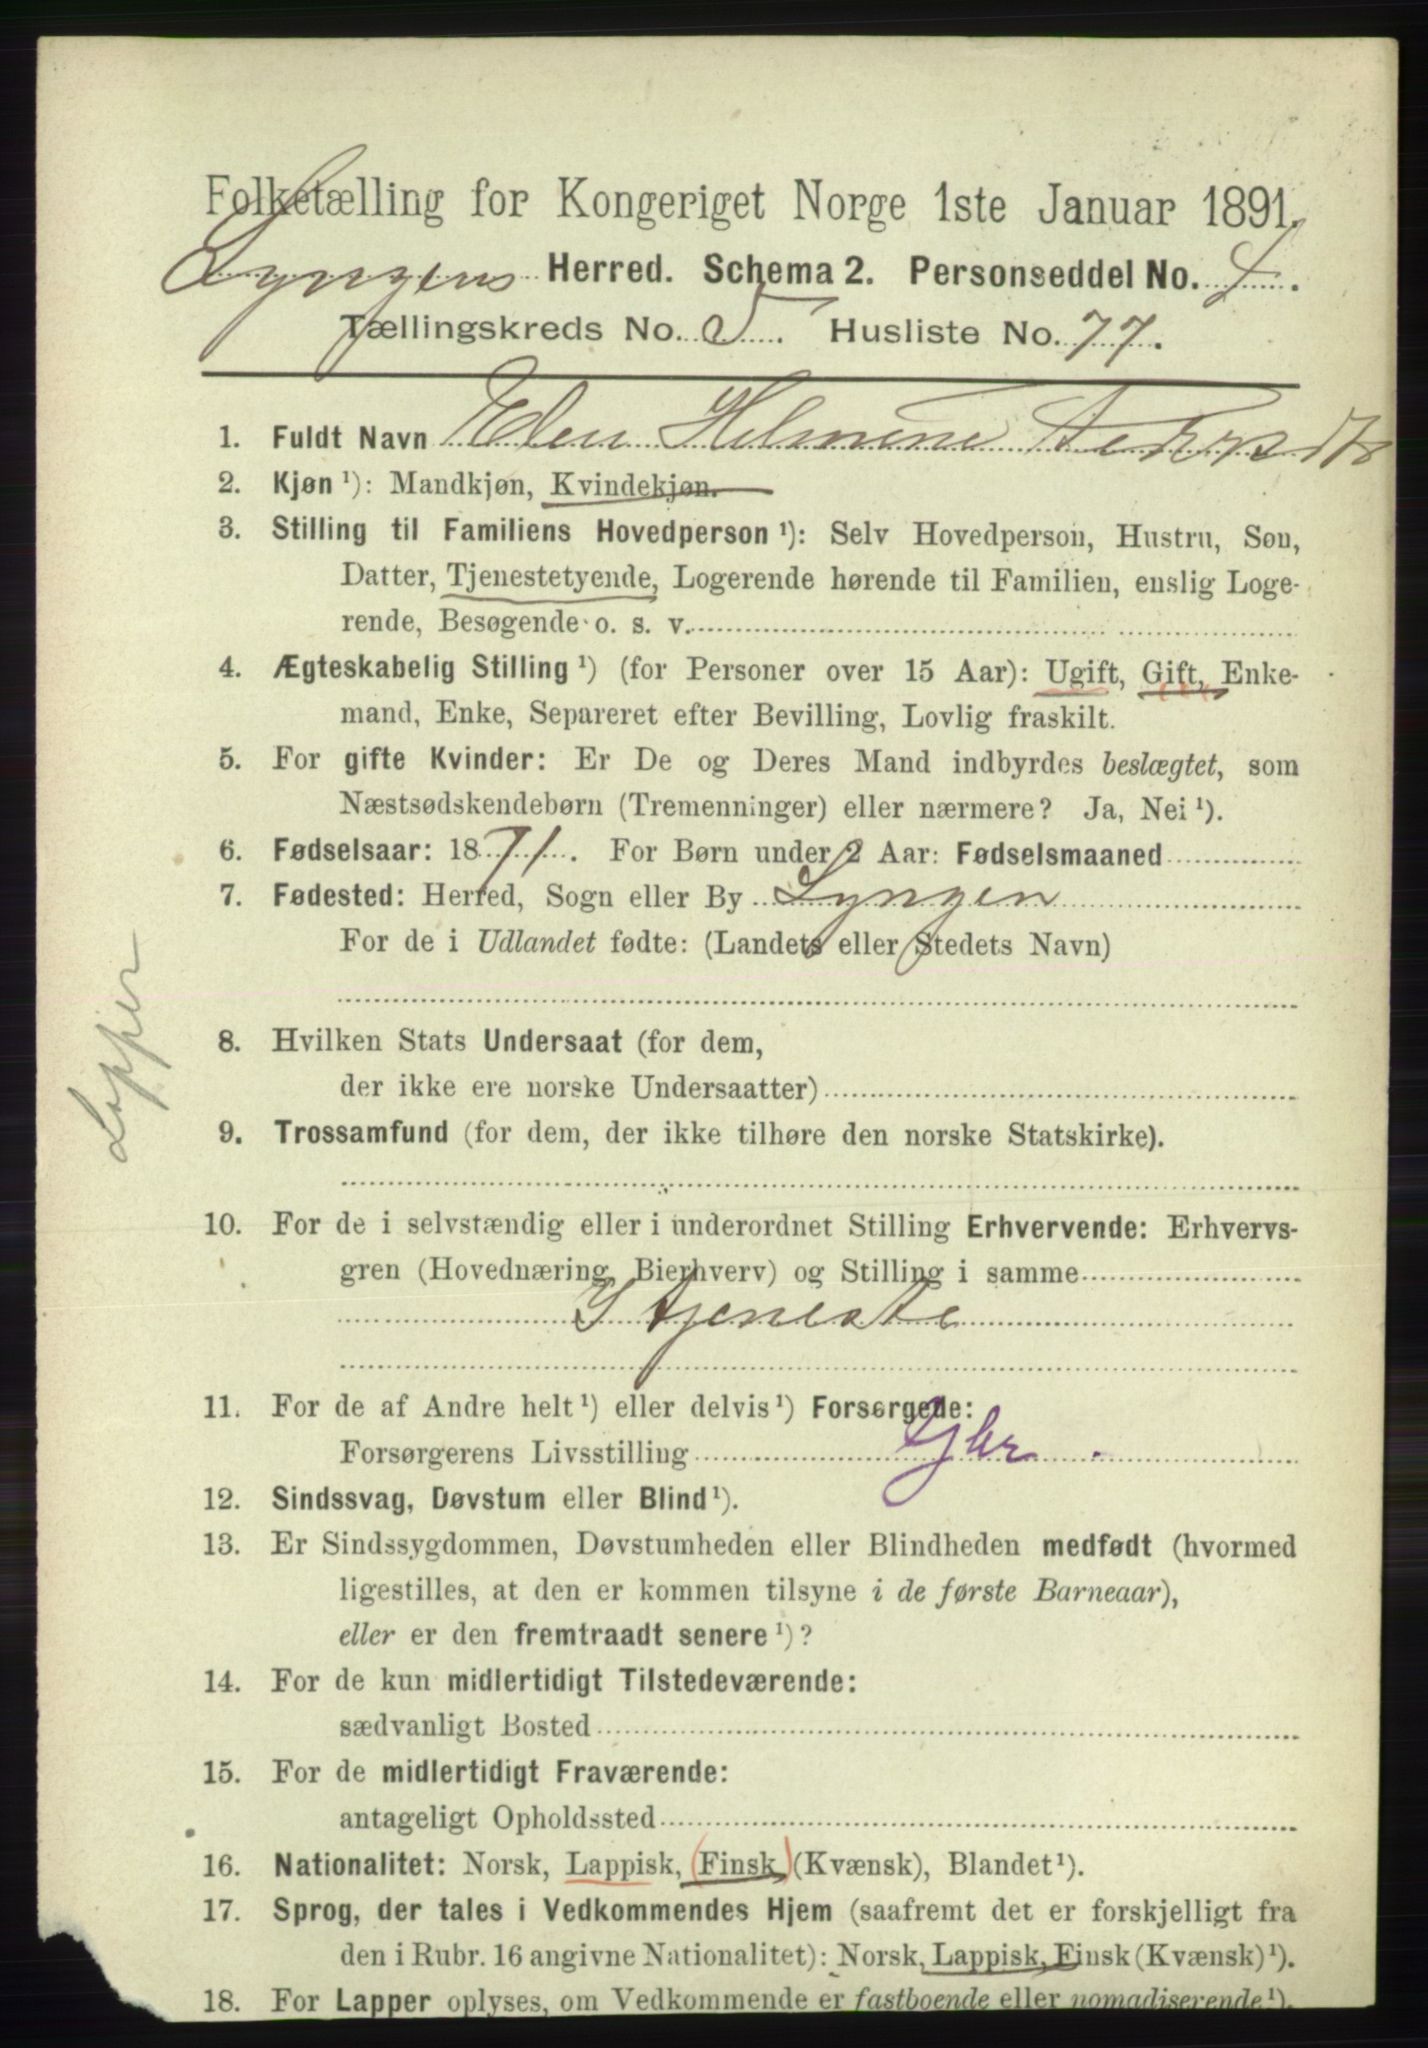 Folketælling for Kongeriget Norge 1ste Januar 1891.
Lyngens Herred. Schema 2. Personseddel No. 4.
Tællingskreds No. 5. Husliste No. 77.
1. Fuldt Navn Elen Helmine
2. Kjøn ¹): Mandkjøn, Kvindekjøn.
3. Stilling til Familiens Hovedperson ¹): Selv Hovedperson, Hustru, Søn,
Datter, Tjenestetyende, Logerende hørende til Familien, enslig Loge-
rende, Besøgende o. s. v.
4. Ægteskabelig Stilling ¹) (for Personer over 15 Aar): Ugift, Gift, Enke-
mand, Enke, Separeret efter Bevilling, Lovlig fraskilt.
5. For gifte Kvinder: Er De og Deres Mand indbyrdes beslægtet, som
Næstsødskendebørn (Tremenninger) eller nærmere? Ja, Nei ¹).
6. Fødselsaar: 1871. For Børn under 2 Aar: Fødselsmaaned
7. Fødested: Herred, Sogn eller By Lyngen
For de i Udlandet fødte: (Landets eller Stedets Navn)
Lapper
8. Hvilken Stats Undersaat (for dem,
der ikke ere norske Undersaatter)
9. Trossamfund (for dem, der ikke tilhøre den norske Statskirke).
10. For de i selvstændig eller i underordnet Stilling Erhvervende: Erhvervs-
gren (Hovednæring, Bierhverv) og Stilling i samme
I tjeneste
11. For de af Andre helt ¹) eller delvis ¹) Forsørgede:
Forsørgerens Livsstilling Gbr.
12. Sindssvag, Døvstum eller Blind ¹).
13. Er Sindssygdommen, Døvstumheden eller Blindheden medfødt (hvormed
ligestilles, at den er kommen tilsyne i de første Barneaar),
eller er den fremtraadt senere ¹)?
14. For de kun midlertidigt Tilstedeværende:
sædvanligt Bosted
15. For de midlertidigt Fraværende:
antageligt Opholdssted
16. Nationalitet: Norsk, Lappisk, (Finsk) (Kvænsk), Blandet ¹).
17. Sprog, der tales i Vedkommendes Hjem (saafremt det er forskjelligt fra
den i Rubr. 16 angivne Nationalitet): Norsk, Lappisk, Finsk (Kvænsk) ¹).
18. For Lapper oplyses, om Vedkommende er fastboende eller nomadiserende ¹).